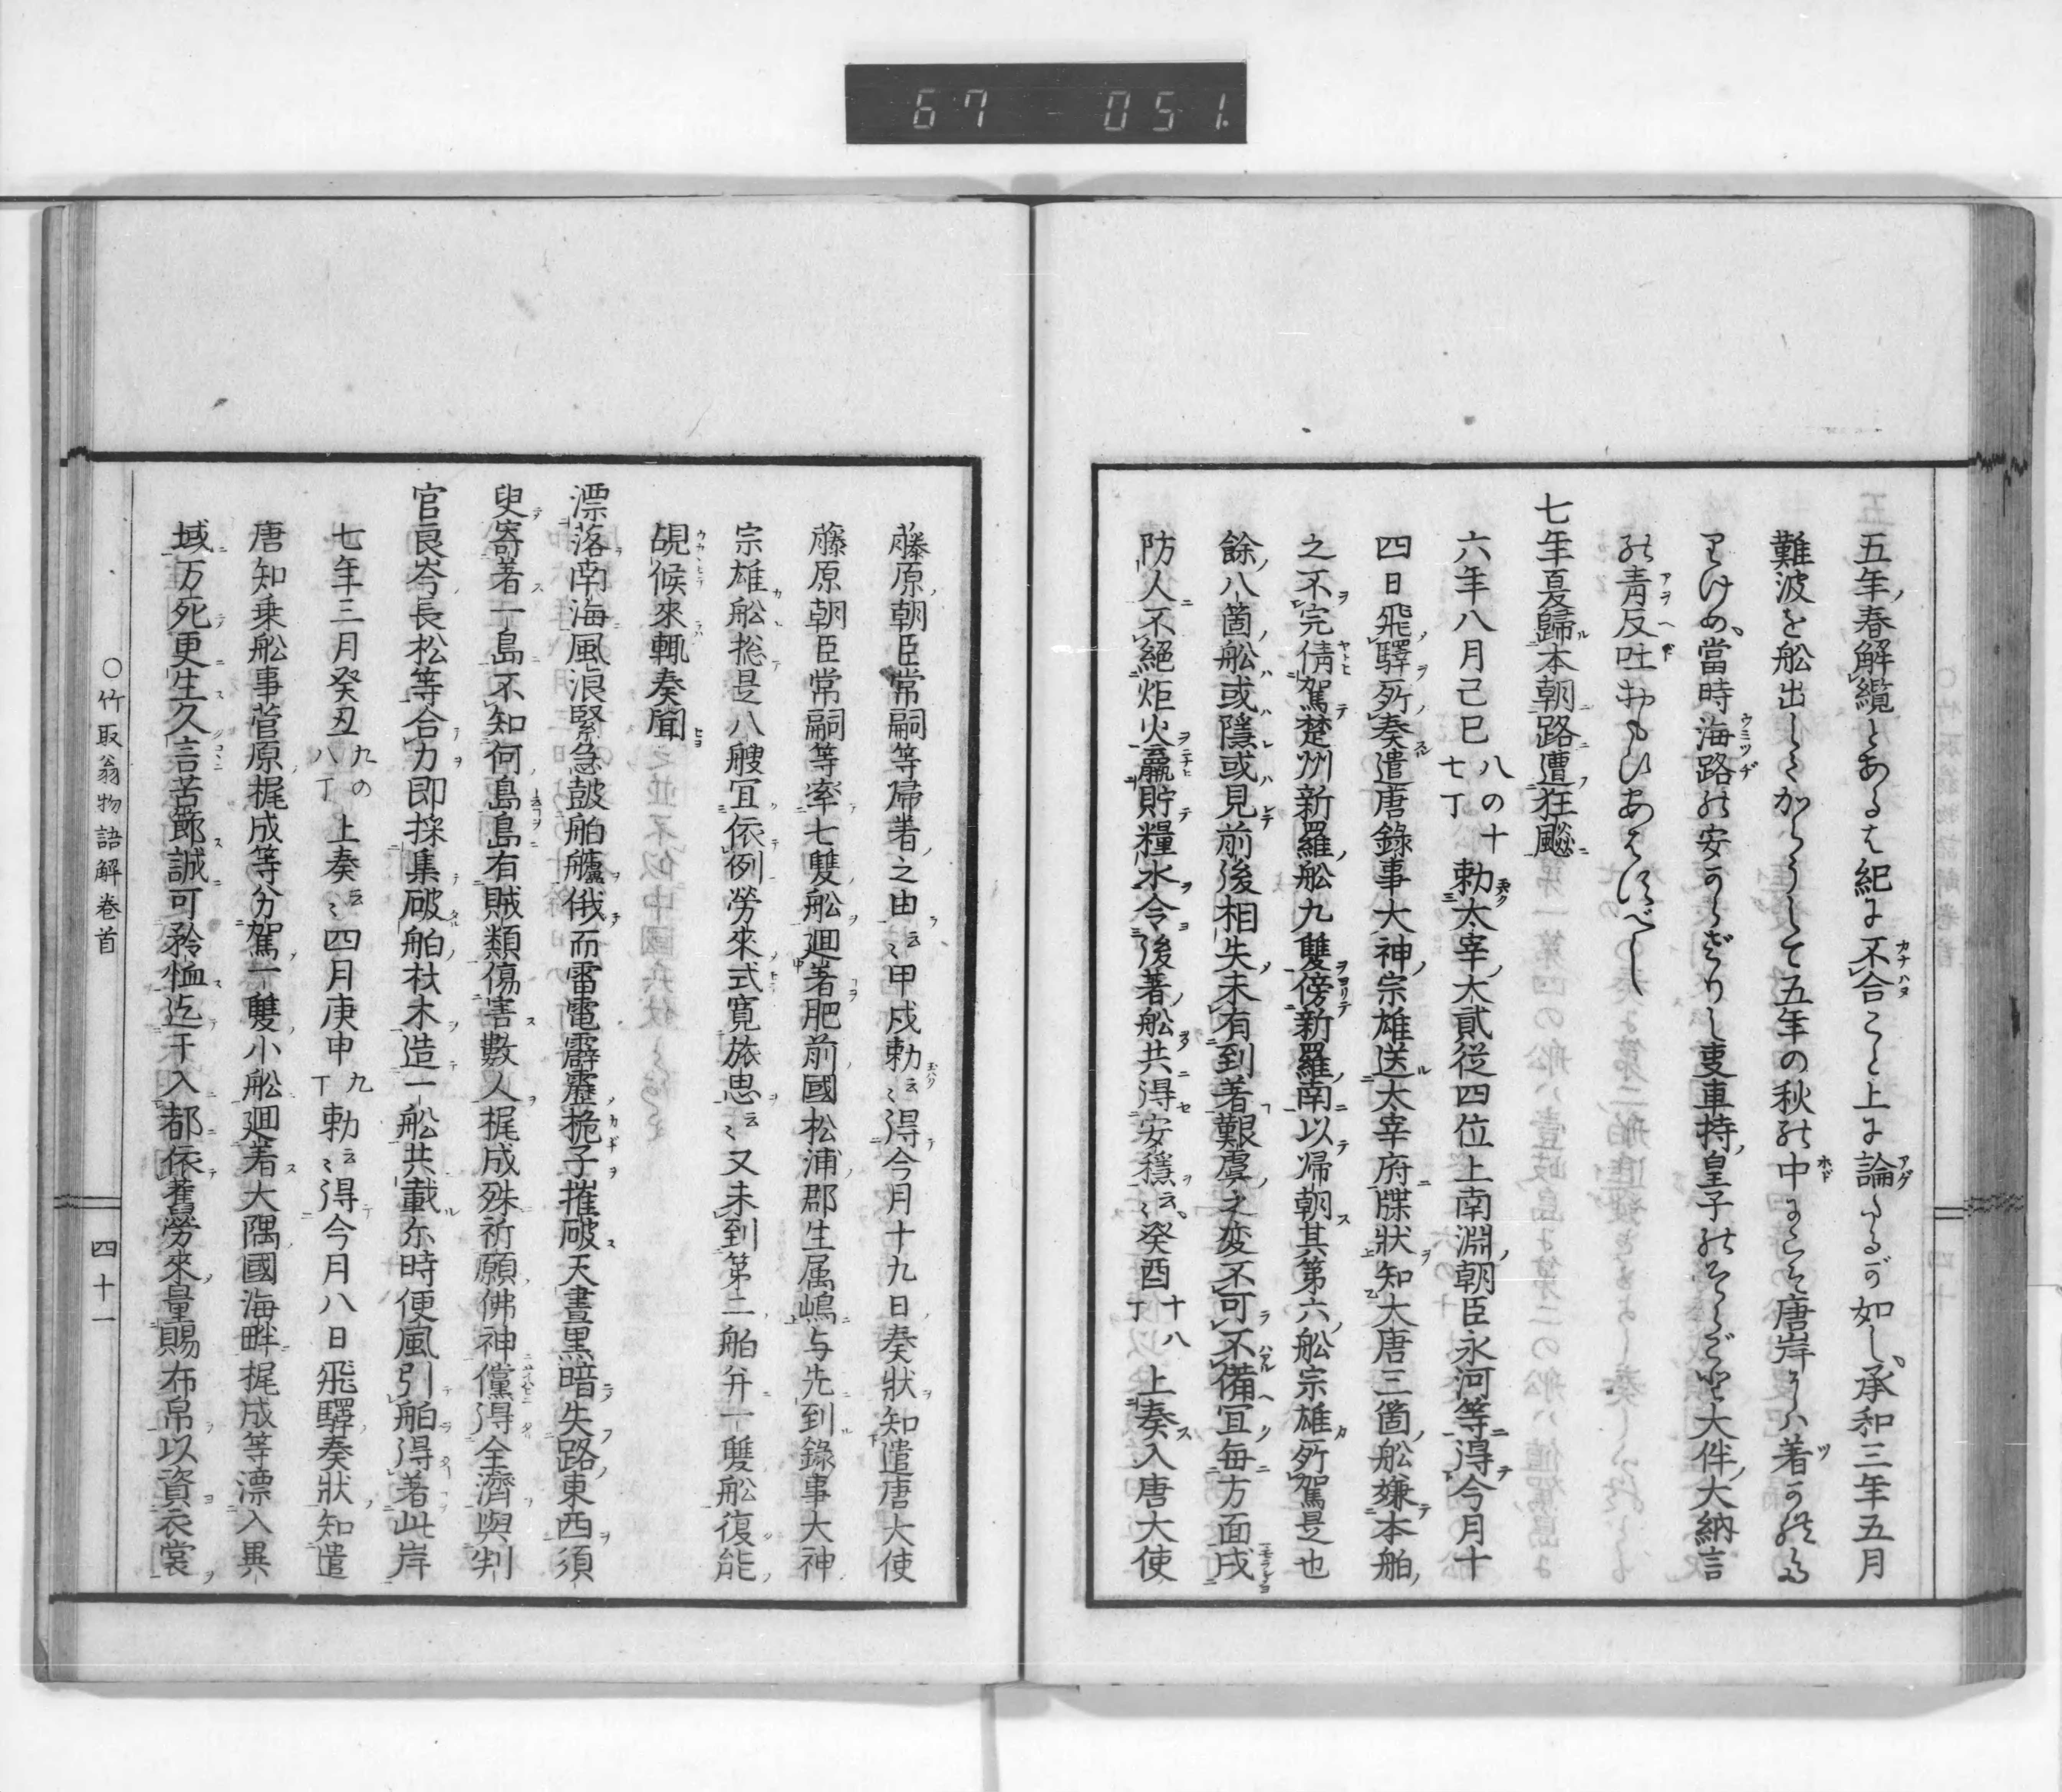 67 051
五年春解纜とあるは紀に不合こと上に論へるが如し、承和三年五月
難波を舩出しつ、からうして五年の秋の中にこそ唐岸には著つれ
當時海路の安からざりし車持皇子のそらごと大伴大納言
の青反吐おもひあはすべし
七年夏歸本朝路遭狂飈
六年八月己巳八の十七丁勅太宰大貳従四位上南淵朝臣永河等得今月十
四日飛驛所奏遣唐錄事大神宗雄送太宰府牒狀知大唐三箇舩嫌本舶
之不完倩駕楚州新羅舩九雙傍新羅南以帰朝其第六舩宗雄所駕是也
餘八箇舩或隱或見前後相失未有到著艱虞之変不可不備宜每方面戍
防人不絕炬火贏貯糧水令後著舩共得安穩云〻癸酉十八丁上奏入唐大使
藤原朝臣常嗣等帰着之由云〻甲戌勅云〻得今月十九日奏狀知遣唐大使
藤原朝臣常嗣等率七雙舩廻著肥前國松浦郡生属嶋与先到錄事大神
宗雄舩揔是八艘宜依例勞來式寬旅思云〻又未到第二舶并一雙舩復能
覘候來輒奏聞
漂落南海風浪緊急皷舶艫俄而雷電霹靂桅子摧破天晝黑暗失路東西須
臾寄著一島不知何島島有賊類傷害數人梶成殊祈願佛神儻得全濟與判
官良岑長松等合力即採集破舶材木造一舩共載尓時便風引舶得著此岸
七年三月癸丑九の八丁上奏云〻四月庚申九丁勅云〻得今月八日飛驛奏狀知遣
唐知乗舩事菅原梶成等分駕一雙小舩廻着大隅國海畔梶成等漂入異
域万死更生久言苦節誠可矜恤迄于入都依舊勞來量賜布帛以資衣裳
○竹取翁物語解巻首
四十一